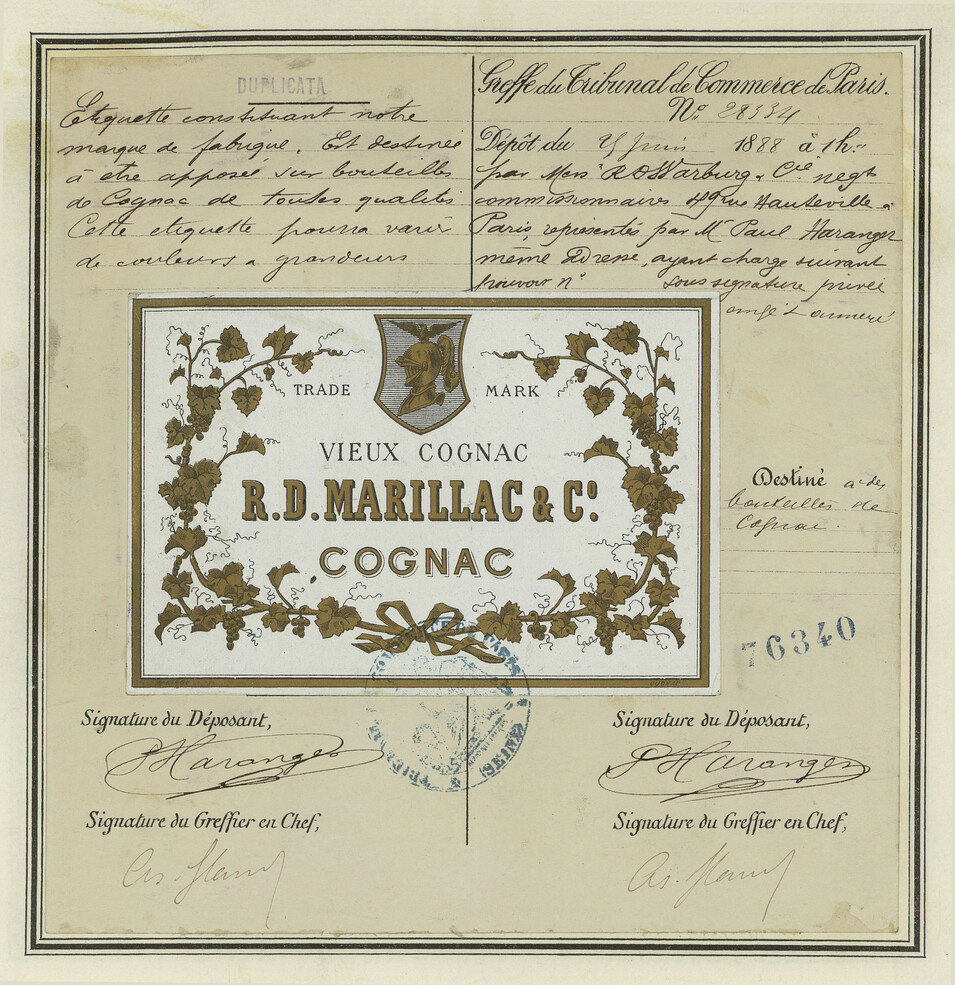 DUPLICATA
Etiquette constituant notre
marque de fabrique. Est destinée
à etre apposée sur bouteilles
de Cognac de toutes qualités
Cette etiquette pourra varier
de couleurs & grandeurs
Greffe du Tribunal de Commerce de Paris.
No. 28334
Dépôt du Juin 1888 à 1h.
par Mess. R D Warburg & Cie negts
commissionnaires 49 rue Hauteville à
Paris, représentés par Mr Paul Haranger
même adresse, ayant charge suivant
pouvoir n° sous signature privée
TRADE MARK
VIEUX COGNAC
R.D. MARILLAC & Co.
COGNAC
Destiné à des
bouteilles de
Cognac.
76340
Signature du Déposant,
PHaranger
Signature du Greffier en Chef,
Signature du Déposant,
PHaranger
Signature du Greffier en Chef,